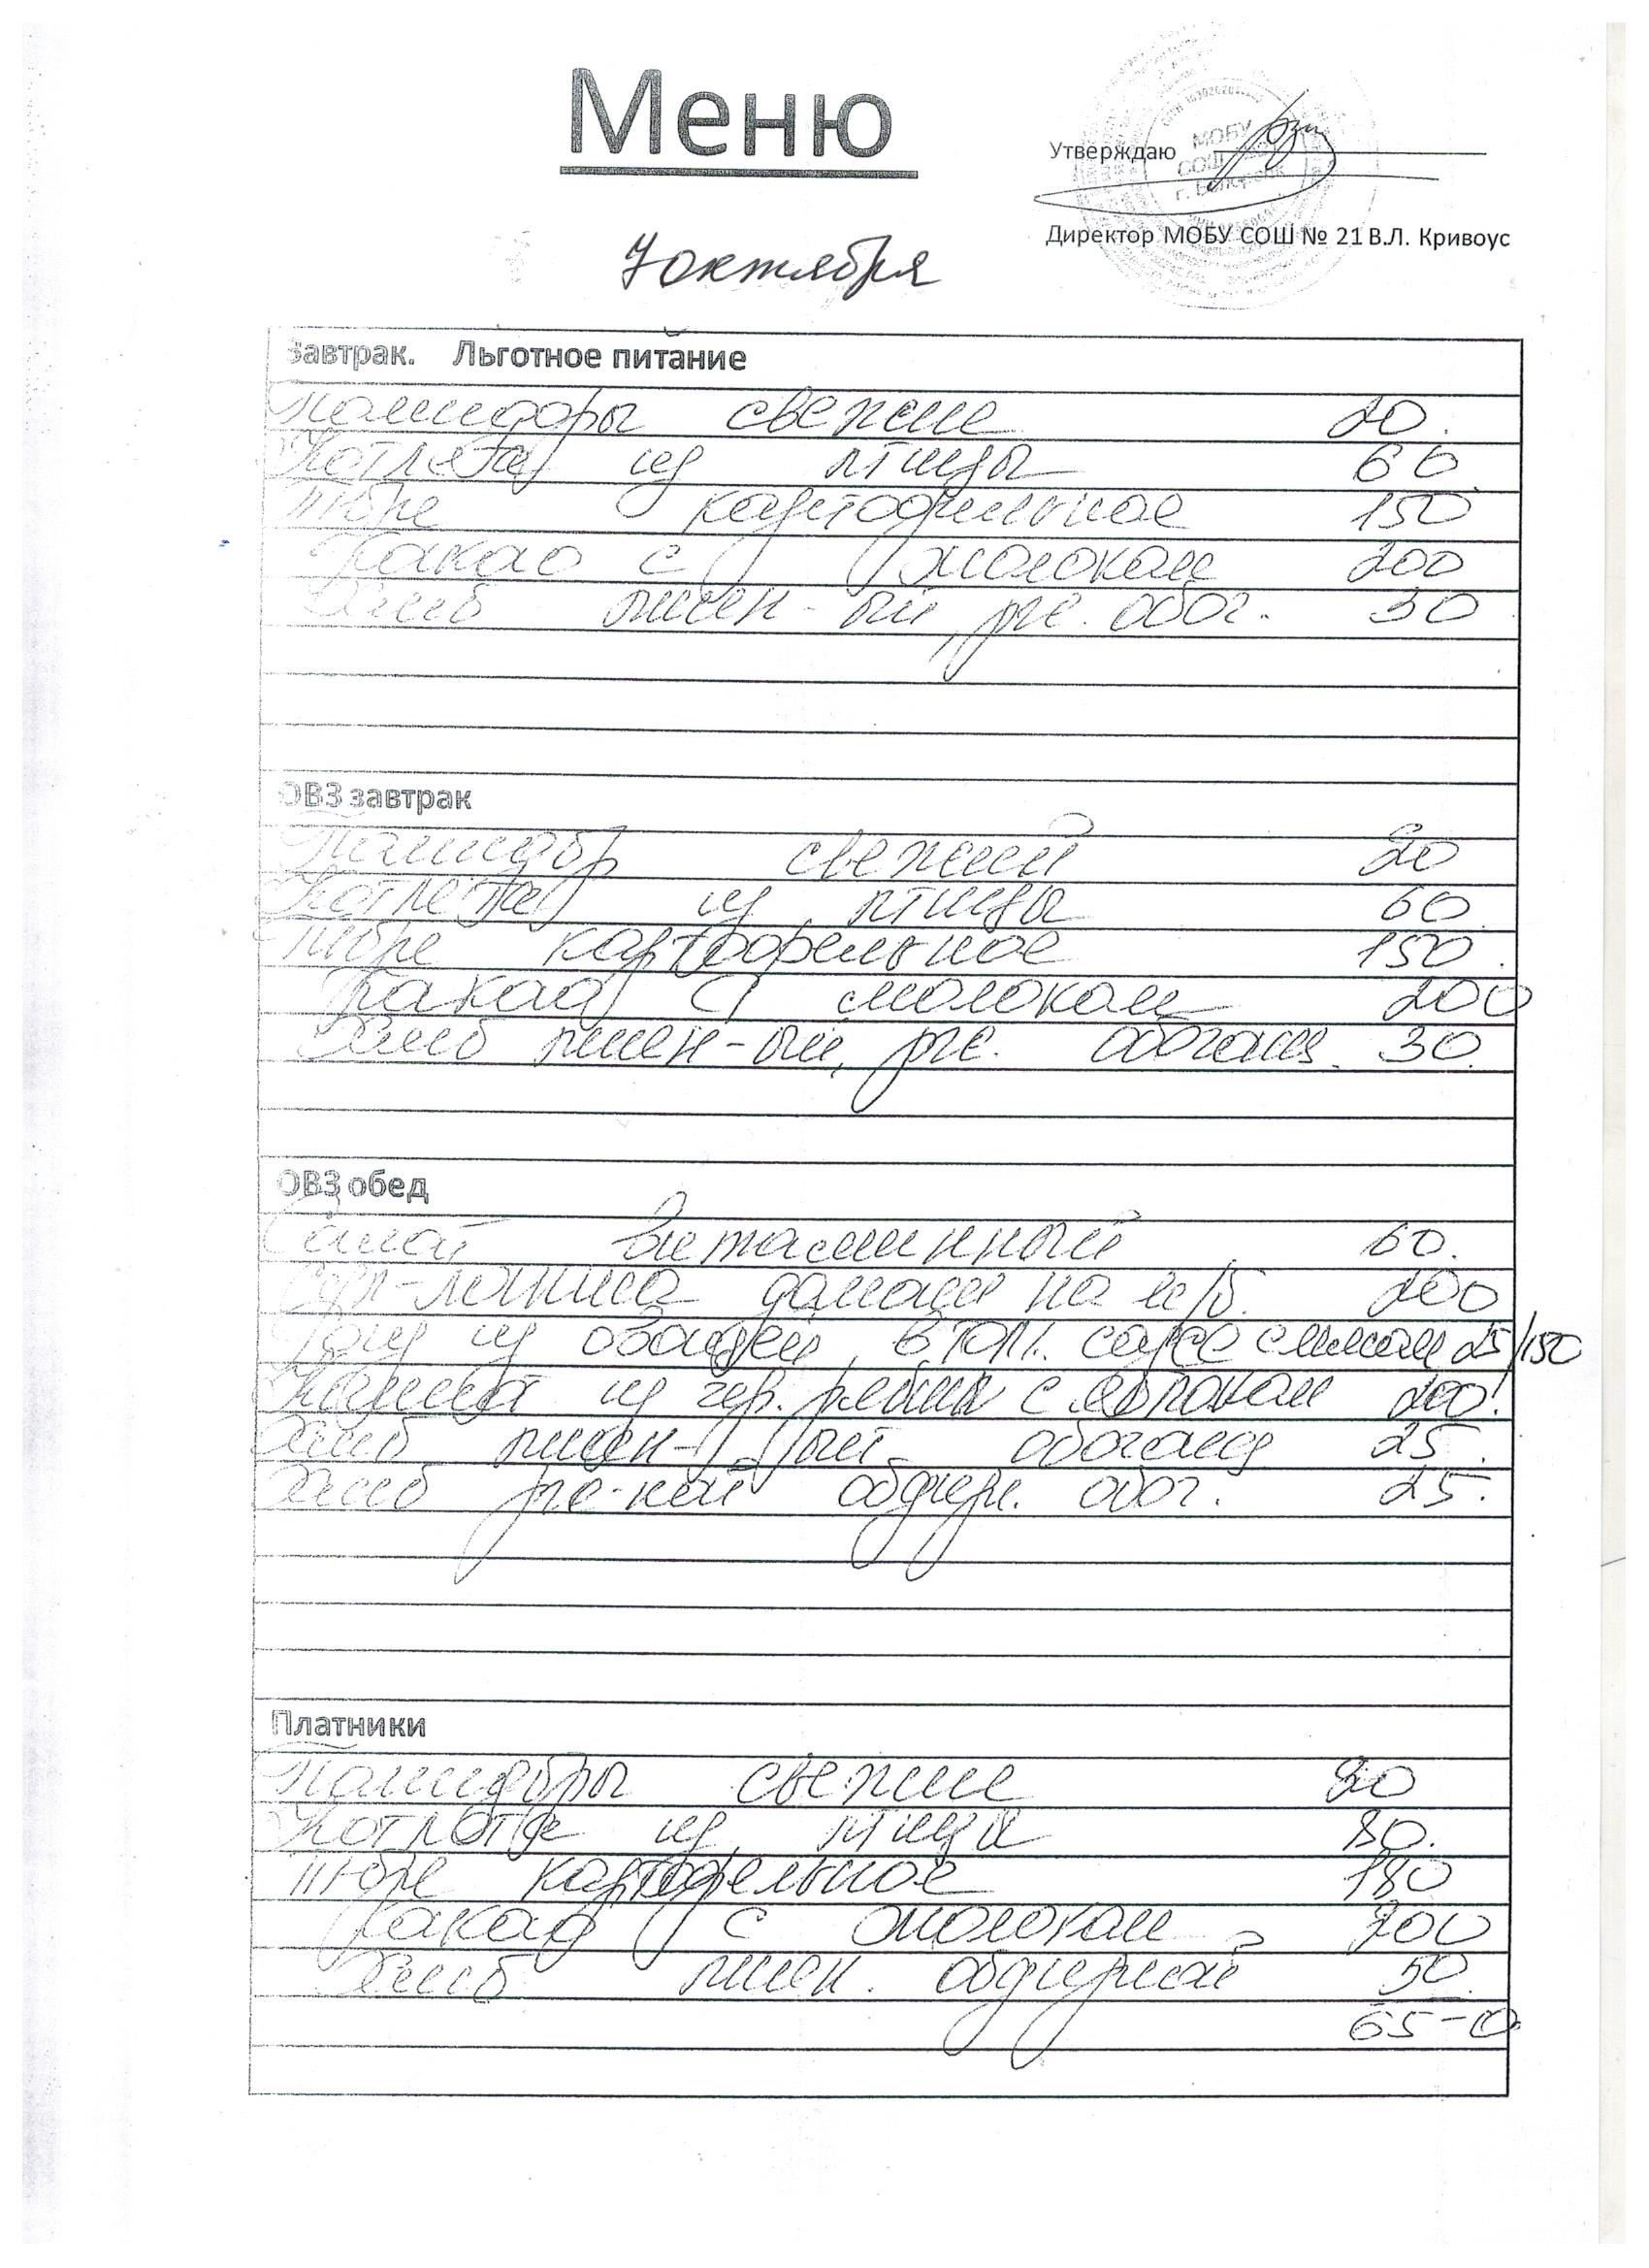 Меню
Утверждаю
МОБУ
СОШ
г. Белорецк
Директор МОБУ СОШ № 21 В.Л. Кривоус
7 октября
Завтрак. Льготное питание
Помидоры свежие 20.
Котлета из птицы 60
Пюре картофельное 150
Какао с молоком 200
Хлеб пшен-ый, рж. обог. 30
ОВЗ завтрак
Помидор свежий 20
Котлета из птицы 60
Пюре картофельное 150.
Какао с молоком 200
Хлеб пшен-ый, рж. обогащ. 30
ОВЗ обед
Салат витаминный 60.
Суп-лапша домаш на м/б. 200
из овощей, в том. соусе с мясом 25/150
из чер. рябин с яблоком 200.
Хлеб пшен-ый обогащ 25.
Хлеб рж-ной обдирн. обог. 25.
Платники
Помидоры свежие 20
Котлета из птицы 80.
Пюре картофельное 180
Какао с молоком 200
Хлеб пшен. обдирной 50.
65-0